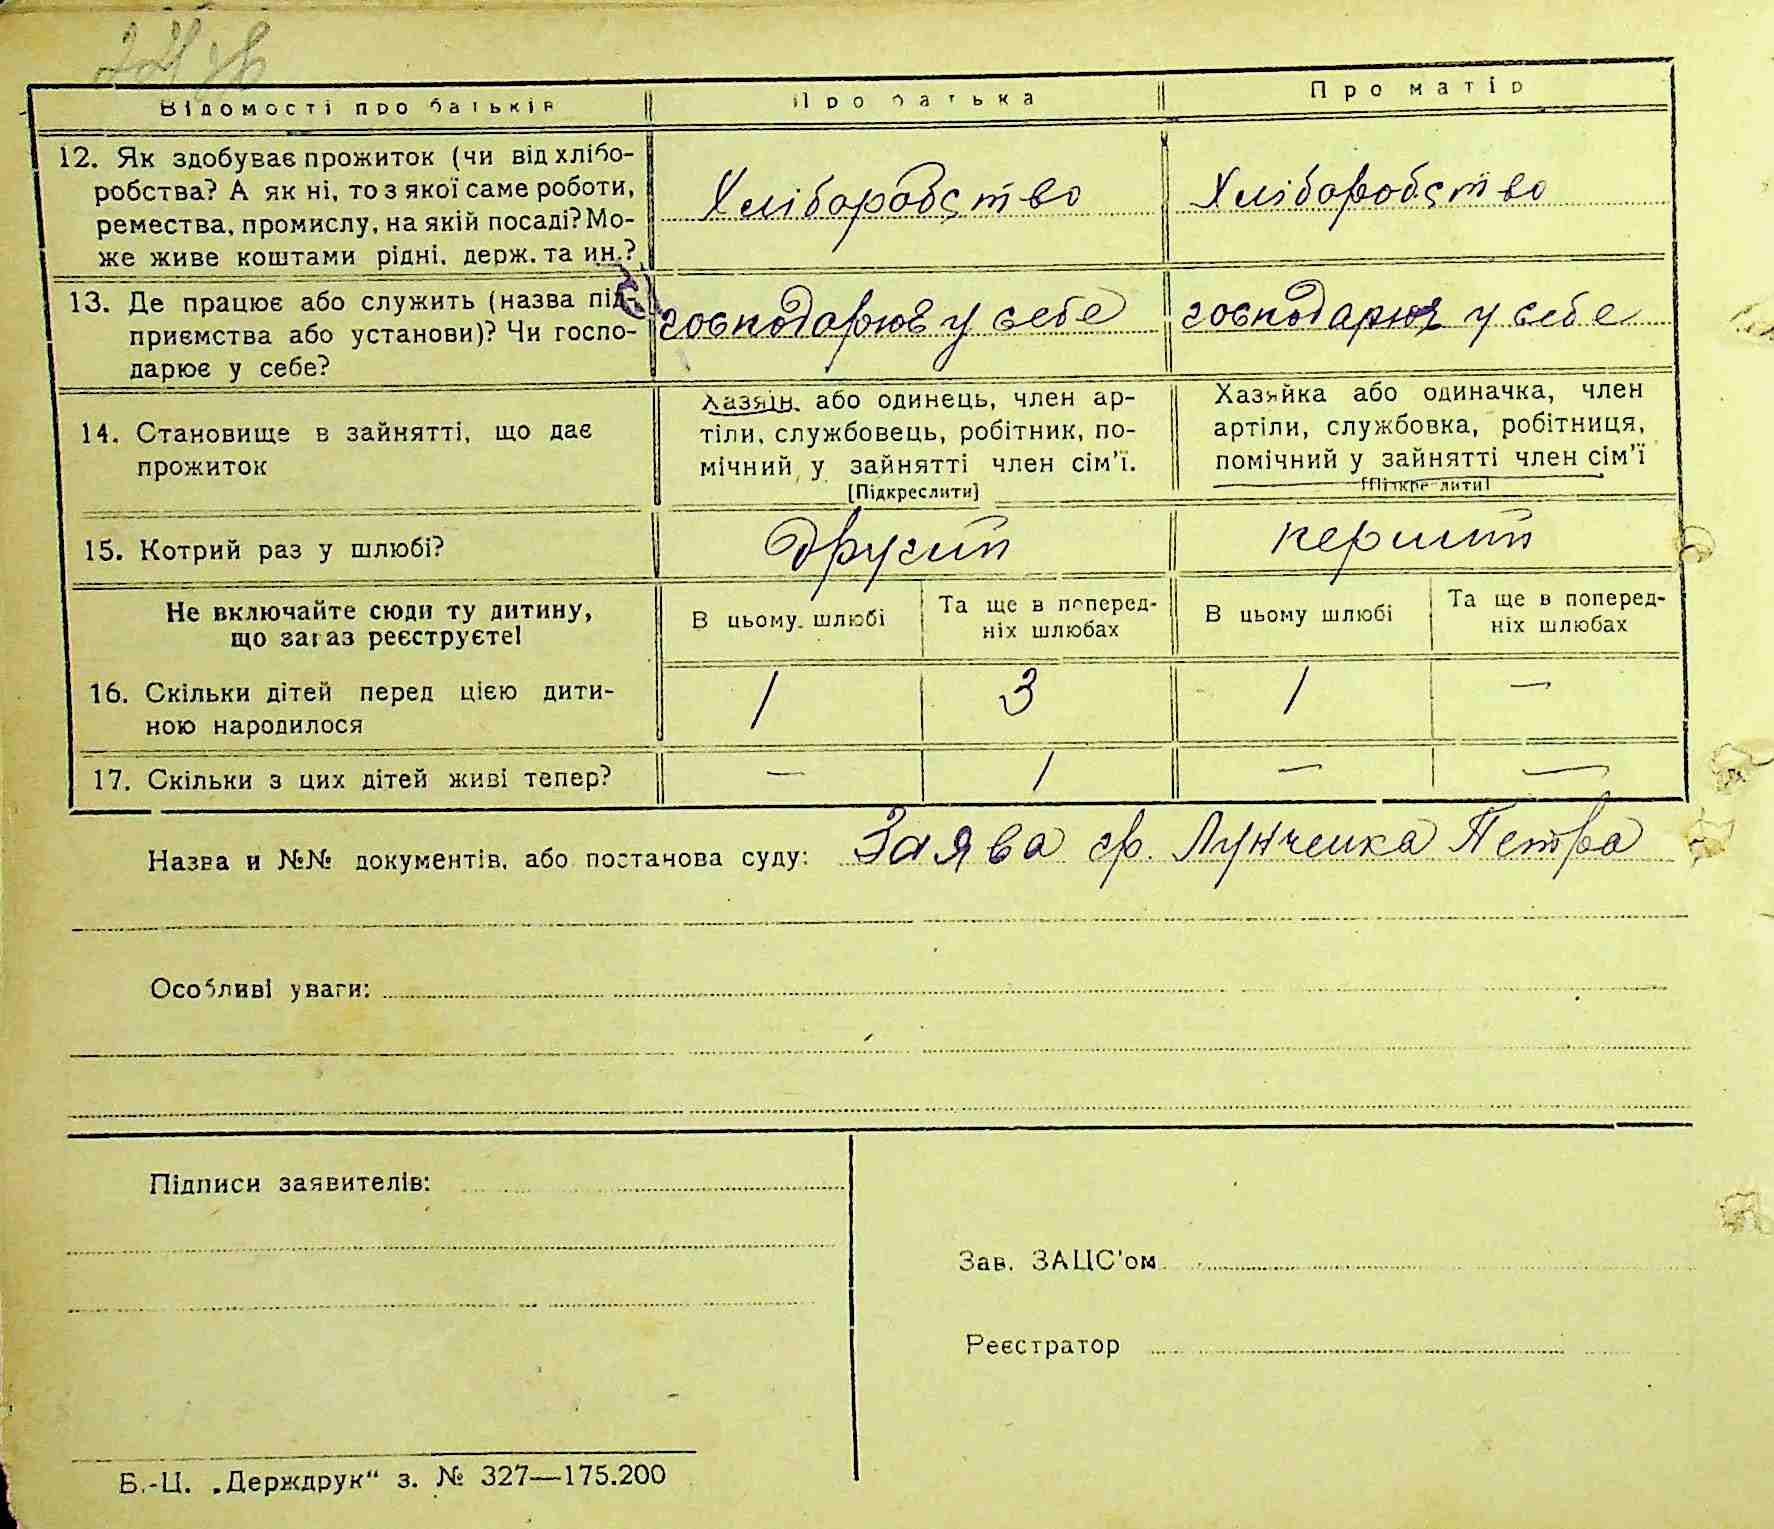 Відомості про батьків Про батька Про матір
12. Як здобуває прожиток (чи від хлібо-
робства? А як ні, то з якої саме роботи,
ремества, промислу, на якій посаді? Мо-
же живе коштами рідні, держ. та ин.?
Хліборобство Хліборобство
13. Де працює або служить (назва під-
приємства або установи)? Чи госпо-
дарює у себе?
господарює у себе господарює у себе
14. Становище в зайнятті, що дає
прожиток
Хазяїн, або одинець, член ар-
тіли, службовець, робітник, по-
мічний у зайнятті член сім’ї.
[Підкреслити]
Хазяйка або одиначка, член
артіли, службовка, робітниця,
помічний у зайнятті член сім’ї
[Підкреслити]
15. Котрий раз у шлюбі? другий перший
Не включайте сюди ту дитину,
що зараз реєструєте!
В цьому шлюбі
Та ще в поперед-
ніх шлюбах
В цьому шлюбі
Та ще в поперед-
ніх шлюбах
16. Скільки дітей перед цією дити-
ною народилося
1 3 1 —
17. Скільки з цих дітей живі тепер? — 1 — —
Назва и №№ документів, або постанова суду: Заява гр. Лунченка Петра
Особливі уваги:
Підписи заявителів:
Зав. ЗАЦС'ом
Реєстратор
Б.-Ц. „Держдрук“ з. № 327—175.200